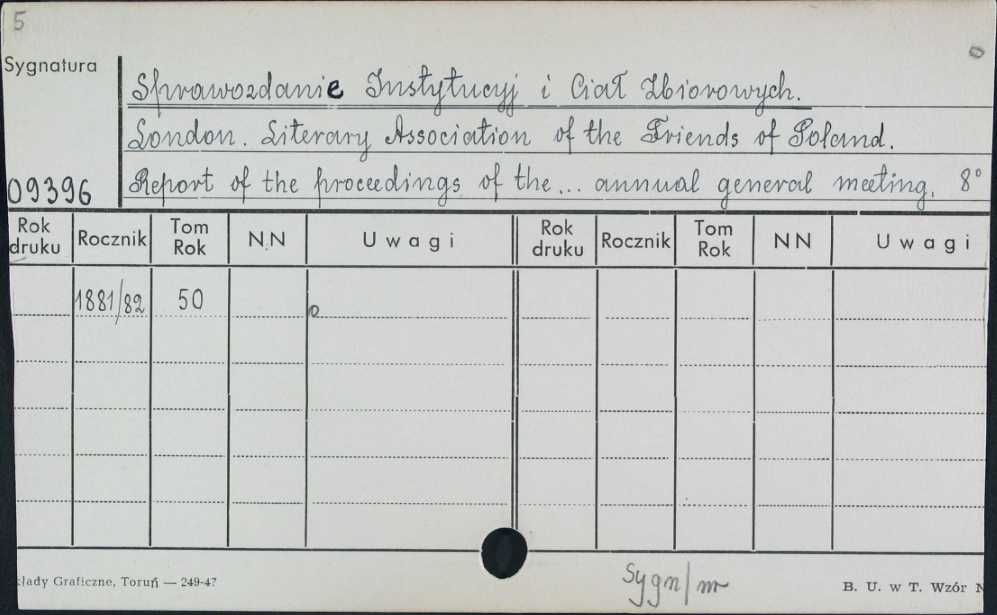 5
0
Sygnatura
Sprawozdanie Instytucyj i Ciał Zbiorowych.
London. Literary Association of the Friends of Poland.
09396 Report of the proceedings of the... annual general meeting, 8°
Rok druku Rocznik Tom Rok NN Uwagi Rok druku Rocznik Tom Rok NN Uwagi
1881/82 50 o
kłady Graficzne, Toruń — 249-47
Sygn/nr
B. U. w T. Wzór N